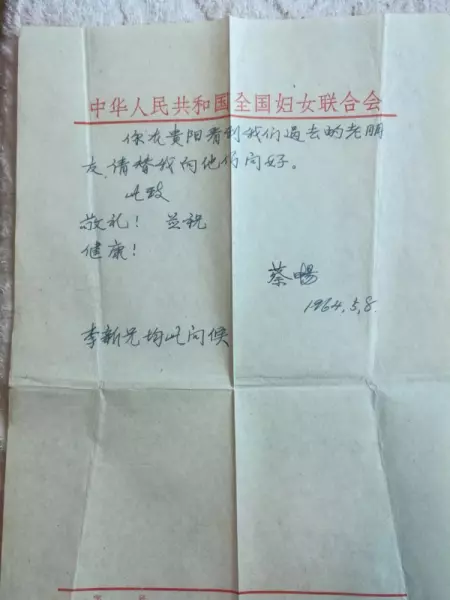 中华人民共和国全国妇女联合会
你在贵阳看到我们过去的老朋
友,请替我向他们问好。
此致
敬礼! 并祝
健康!
蔡畅
1964.5.8.
李新兄均此问候